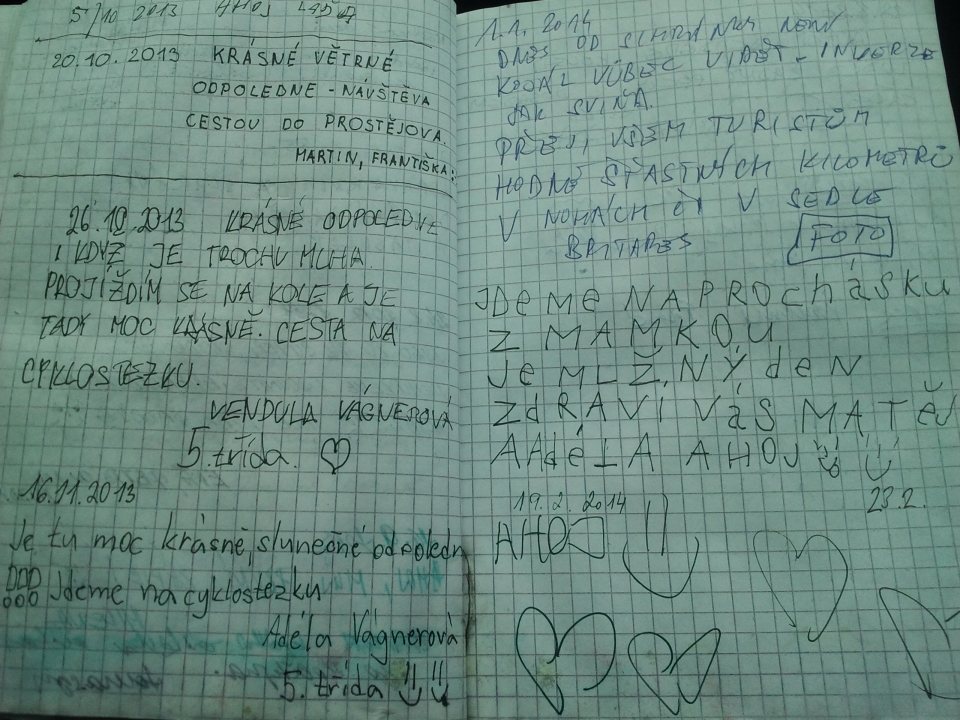 5/10 2013 AHOJ
20.10.2013 KRÁSNÉ VĚTRNÉ
ODPOLEDNE - NÁVŠTĚVA
CESTOU DO PROSTĚJOVA.
MARTIN, FRANTIŠKA
26.10.2013 KRÁSNÉ ODPOLEDNE
I KDYŽ JE TROCHU MLHA.
PROJÍŽDÍM SE NA KOLE A JE
TADY MOC KRÁSNĚ. CESTA NA
CYKLOSTEZKU.
VENDULA VÁGNEROVÁ
5. třída. ♡
16.11.2013
Je tu moc krásné, slunečné odpoledn
!!! Jdeme na cyklostezku
Adéla Vágnerová
5. třída
1.1. 2014
DNES OD SCHRÁNKY NENÍ
VŮBEC VIDĚT - INVERZE
JAK SVIŇA.
PŘEJI VŠEM TURISTŮM
HODNĚ ŠŤASTNÝCH KILOMETRŮ
V NOHÁCH ČI V SEDLE
FOTO
JDeMe NA PROchásku
Z MAMKOU
Je MLŽ,NÝ deN
ZdRAVÍ VáS MATěJ
A Adé LA AHOJ
19.2. 2014
23.2.
AHOJ